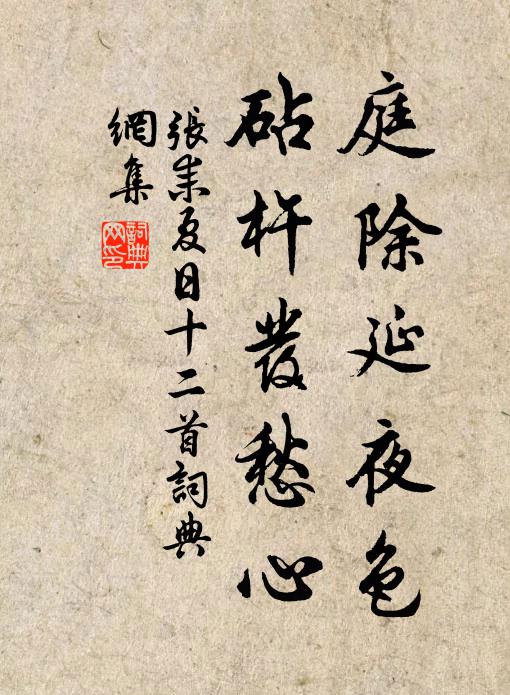 庭除延夜色
砧杵發愁心
張耒夏日十二首詞典
網集
詞典
网印